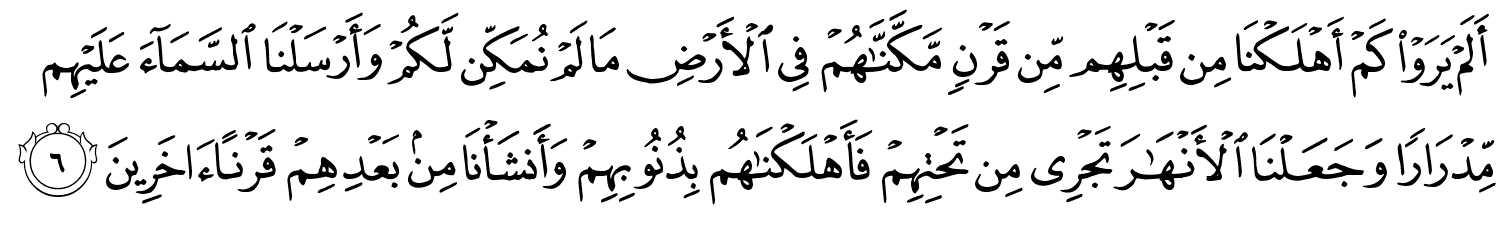 أَلَمۡ يَرَوۡاْ كَمۡ أَهۡلَكۡنَا مِن قَبۡلِهِم مِّن قَرۡنٖ مَّكَّنَّٰهُمۡ فِي ٱلۡأَرۡضِ مَا لَمۡ نُمَكِّن لَّكُمۡ وَأَرۡسَلۡنَا ٱلسَّمَآءَ عَلَيۡهِم
مِّدۡرَارٗا وَجَعَلۡنَا ٱلۡأَنۡهَٰرَ تَجۡرِي مِن تَحۡتِهِمۡ فَأَهۡلَكۡنَٰهُم بِذُنُوبِهِمۡ وَأَنشَأۡنَا مِنۢ بَعۡدِهِمۡ قَرۡنًا ءَاخَرِينَ ٦